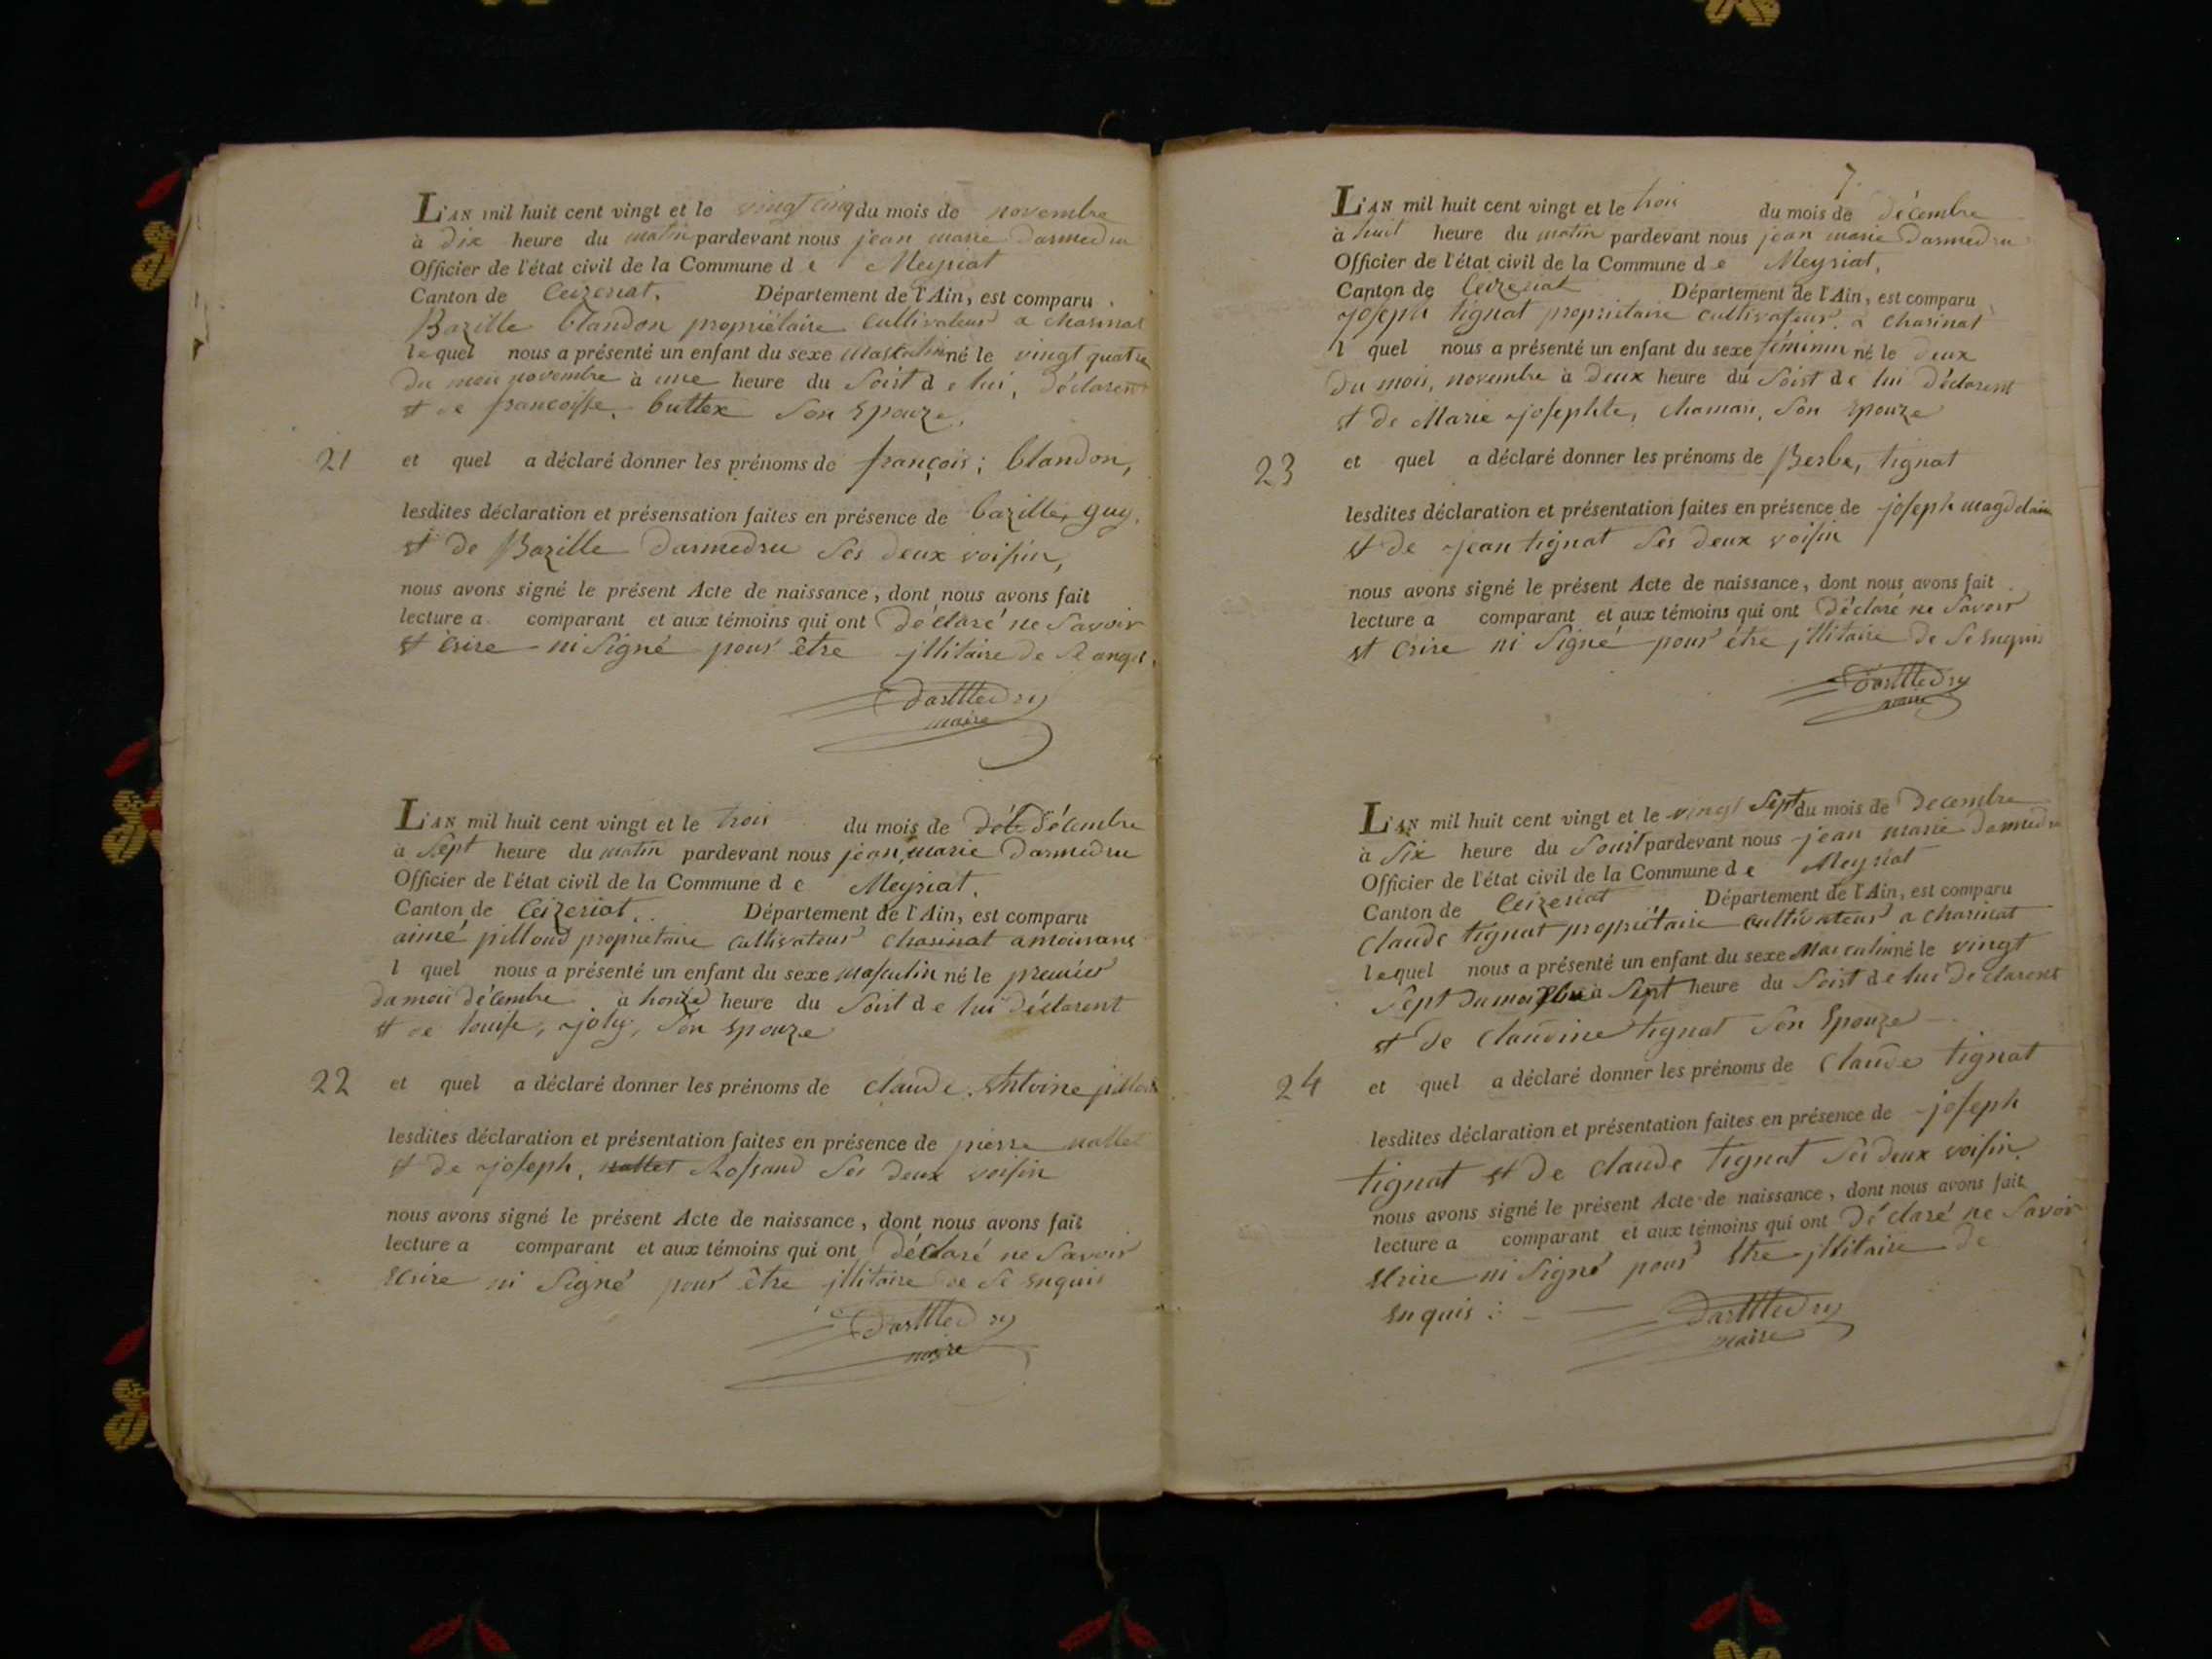 L'AN mil huit cent vingt et le vingt cinq du mois de novembre
à dix heure du matin pardevant nous jean marie darmedru
Officier de l'état civil de la Commune de Meyriat
Canton de Ceizeriat. Département de l'Ain, est comparu
Bazille blandon propriétaire cultivateur a charinat
lequel nous a présenté un enfant du sexe Masculin né le vingt quatre
du moii novembre à une heure du Soist de lui, déclarent
et de francoisse, buttex Son Epouze,
21 et quel a déclaré donner les prénoms de françois; blandon,
lesdites déclaration et présensation faites en présence de bazille, guy,
et de Bazille darmedru Ses deux voisin,
nous avons signé le présent Acte de naissance, dont nous avons fait
lecture a comparant et aux témoins qui ont déclaré ne Savoir
et Crire ni Signé pour être jllitaire de
darMedru
maire
L'AN mil huit cent vingt et le trois du mois de décembre
à Sept heure du matin pardevant nous jean, marie darmedru
Officier de l'état civil de la Commune de Meyriat.
Canton de Ceizeriat. Département de l'Ain, est comparu
aimé pilloud propriétaire cultivateur charinat amoirans
l quel nous a présenté un enfant du sexe masculin né le premier
du moii décembre à honze heure du Soist de lui déclarent
et de louise, joly, Son Epouze
22 et quel a déclaré donner les prénoms de claude. Antoine pilloud
lesdites déclaration et présentation faites en présence de pierre nallet
et de joseph, nallet Rossand Ses deux voisin
nous avons signé le présent Acte de naissance, dont nous avons fait
lecture a comparant et aux témoins qui ont déclaré ne Savoir
Ecrire ni Signé pour être jllitaire de Se Enquis
darMedru
maire
7
L'AN mil huit cent vingt et le trois du mois de décembre
à huit heure du matin pardevant nous jean marie darmedru
Officier de l'état civil de la Commune de Meyriat,
Canton de Ceizeriat Département de l'Ain, est comparu
joseph tignat propriétaire cultivateur. a charinat
l quel nous a présenté un enfant du sexe féminin né le deux
du mois, novembre à deux heure du Soist de lui déclarent
et de Marie josephte, chaman, Son Epouze
23 et quel a déclaré donner les prénoms de Berbe, tignat
lesdites déclaration et présentation faites en présence de joseph magdelain
et de jean tignat Ses deux voisin
nous avons signé le présent Acte de naissance, dont nous avons fait
lecture a comparant et aux témoins qui ont déclaré ne Savoir
et Crire ni Signé pour être jllitaire de Se Enquis
darMedru
maire
L'AN mil huit cent vingt et le vingt Sept du mois de decembre
à Six heure du Soist pardevant nous jean marie darmedru
Officier de l'état civil de la Commune de Meyriat
Canton de Ceizeriat Département de l'Ain, est comparu
claude tignat propriétaire cultivateur a charinat
lequel nous a présenté un enfant du sexe Masculin né le vingt
Sept du mois à Sept heure du Soist de lui declarent
et de claudine tignat Son Epouze
24 et quel a déclaré donner les prénoms de claude tignat
lesdites déclaration et présentation faites en présence de joseph
tignat et de claude tignat Ses deux voisin
nous avons signé le présent Acte de naissance, dont nous avons fait
lecture a comparant et aux témoins qui ont déclaré ne Savoir
Ecrire ni Signé pour Etre jllitaire de
Enquis :
darMedru
maire